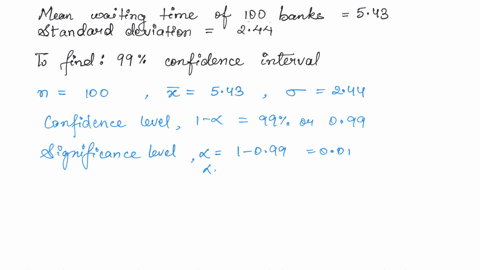 Mean waiting time of 100 banks = 5.43
Standard deviation = 2.44
To find: 99% confidence interval
n = 100 , x̄ = 5.43 , σ = 2.44
Confidence level, 1-α = 99% or 0.99
Significance level, α = 1-0.99 = 0.01
α